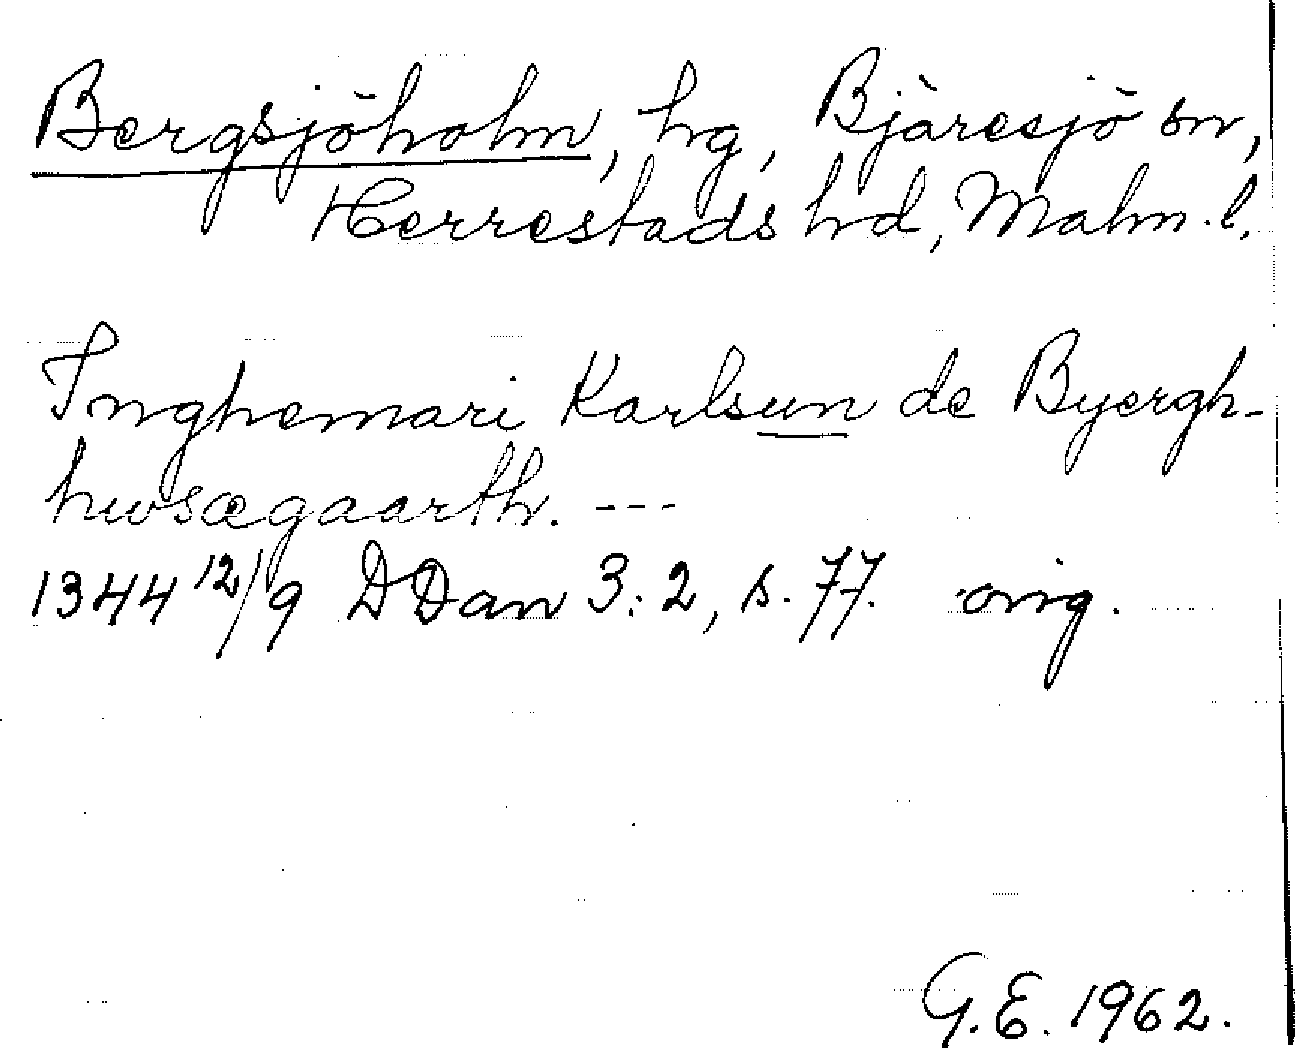 Bergsjöholm, hg, Bjäresjö sn,
Herrestads hd, Malm. l.
Inghemari Karlsun de Byergh-
husægaarth. ---
1344 12/9 DDan 3:2, s. 77. orig.
G. E. 1962.